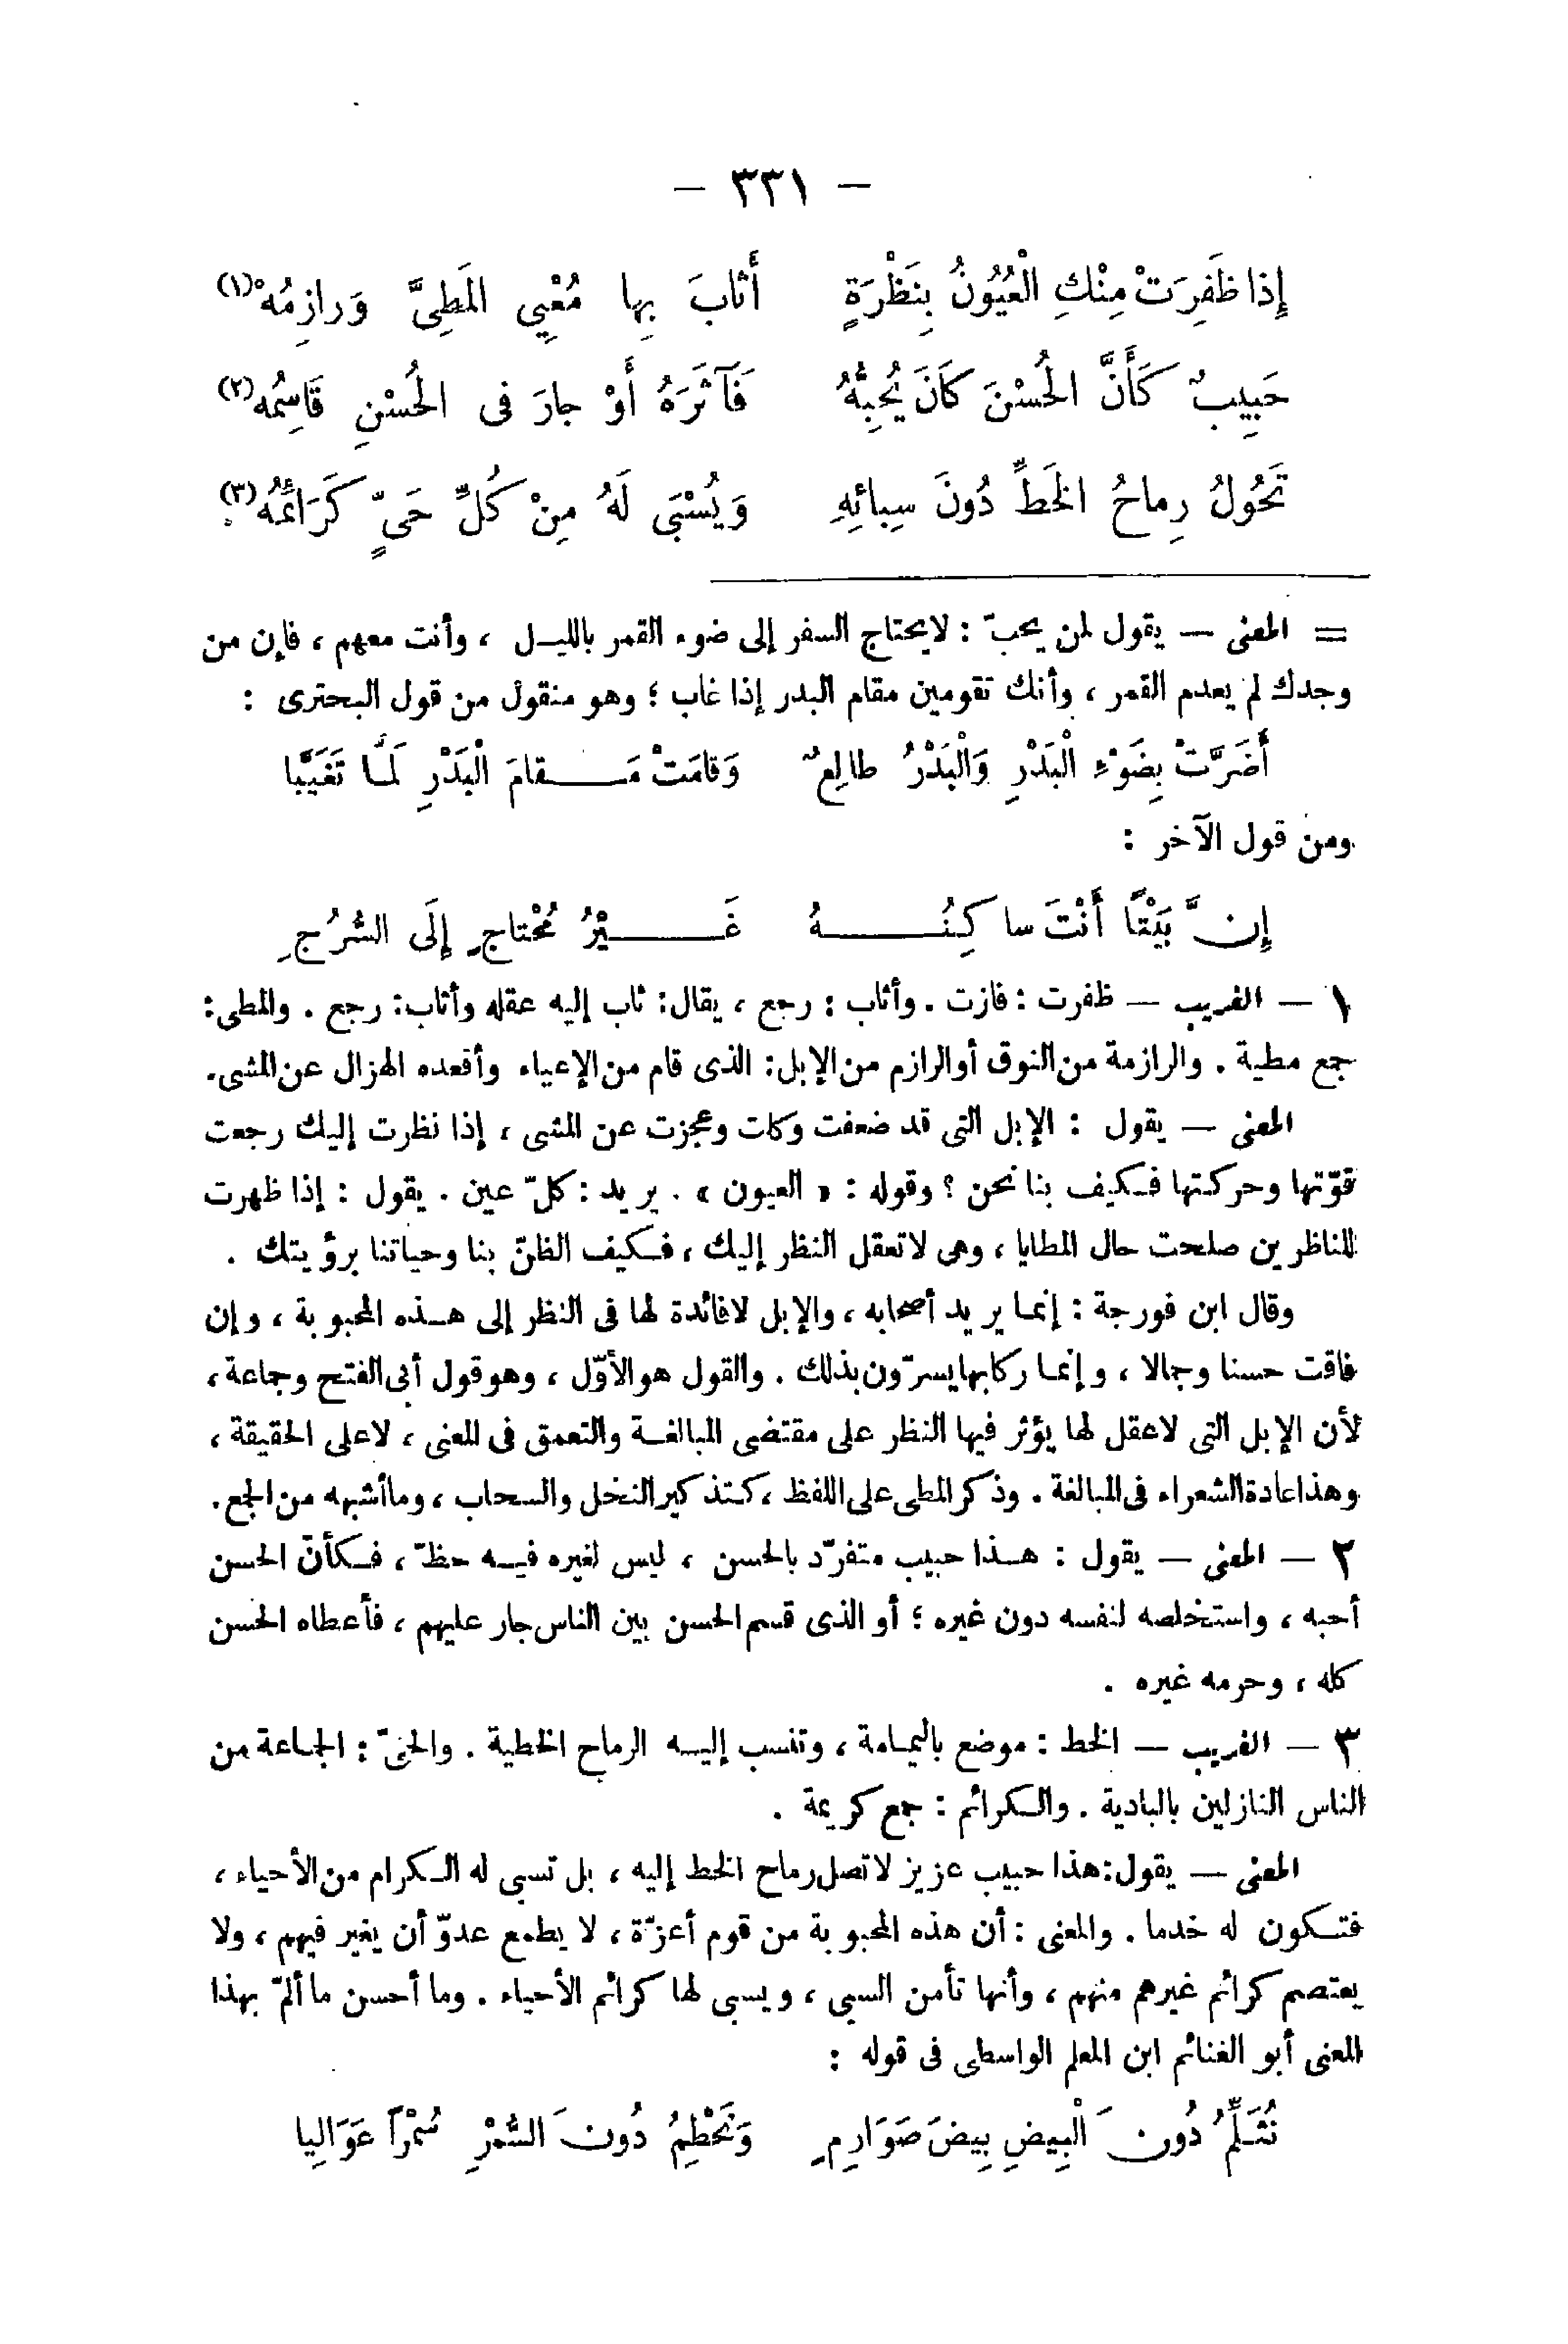 — ٣٣١ —
إِذا ظَفِرَتْ مِنْكِ الْعُيُونُ بِنَظْرَةٍ أَثابَ بِها مُعْيِي المَطِيَّ وَرازِمُهْ (١)
حَبِيبٌ كَأَنَّ الْحُسْنَ كانَ يُحِبُّهُ فَآثَرَهُ أَوْ جارَ فى الْحُسْنِ قَاسِمُه (٢)
تَحُولُ رِماحُ الخَطِّ دُونَ سِبائِهِ وَيُسْبَى لَهُ مِنْ كُلِّ حَىٍّ كَرَائِمُهُ (٣)
= المعنى — يقول لمن يحبّ : لا يحتاج السفر إلى ضوء القمر بالليـل ، وأنت معهم ، فإن من
وجدك لم يعدم القمر ، وأنك تقومين مقام البدر إذا غاب ؛ وهو منقول من قول البحترى :
أَضَرَّتْ بِضَوْءِ الْبَدْرِ وَالْبَدْرُ طالِعٌ وَقامَتْ مَــقامَ الْبَدْرِ لَمَّا تَغَيَّبا
ومن قول الآخر :
إِنَّ بَيْتًا أَنْتَ ساكِنُــهُ غَــيْرُ مُحْتاجٍ إِلَى السُّرُجِ
١ — الغريب — ظفرت : فازت . وأثاب : رجع ، يقال: ثاب إليه عقله وأثاب: رجع . والمطى:
جمع مطية . والرازمة من النوق أو الرازم من الإبل: الذى قام من الإعياء وأقعده الهزال عن المشى.
المعنى — يقول : الإبل التى قد ضعفت وكلت وعجزت عن المشى ، إذا نظرت إليك رجعت
قوّتها وحركتها فـكيف بنا نحن ؟ وقوله : « العيون » . يريد : كلّ عين . يقول : إذا ظهرت
للناظرين صلحت حال المطايا ، وهى لا تعقل النظر إليك ، فـكيف الظنّ بنا وحياتنا برؤيتك .
وقال ابن فورجة : إنما يريد أصحابه ، والإبل لا فائدة لها فى النظر إلى هـذه المحبوبة ، وإن
فاقت حسنا وجمالا ، وإنما ركابها يسرّون بذلك . والقول هو الأوّل ، وهو قول أبى الفتح وجماعة ،
لأن الإبل التى لا عقل لها يؤثر فيها النظر على مقتضى المبالغـة والتعمق فى المعنى ، لا على الحقيقة ،
وهذا عادة الشعراء فى المبالغة . وذكر المطى على اللفظ ، كتذكير النخل والسحاب ، وما أشبهه من الجمع.
٢ — المعنى — يقول : هـذا حبيب متفرّد بالحسن ، ليس لغيره فيـه حظّ ، فـكأن الحسن
أحبه ، واستخلصه لنفسه دون غيره ؛ أو الذى قسم الحسن بين الناس جار عليهم ، فأعطاه الحسن
كله ، وحرمه غيره .
٣ — الغريب — الخط : موضع باليمـامة ، وتنسب إليـه الرماح الخطية . والحىّ : الجماعة من
الناس النازلين بالبادية . والـكرائم : جمع كريمة .
المعنى — يقول: هذا حبيب عزيز لا تصل رماح الخط إليه ، بل تسبى له الـكرام من الأحياء ،
فتـكون له خدما . والمعنى : أن هذه المحبوبة من قوم أعزّة ، لا يطمع عدوّ أن يغير فيهم ، ولا
يعتصم كرائم غيرهم منهم ، وأنها تأمن السبى ، ويسبى لها كرائم الأحياء . وما أحسن ما ألمّ بهذا
المعنى أبو الغنائم ابن المعلم الواسطى فى قوله :
نُثَـلِّمُ دُونَ الْبِيضِ بِيضَ صَوَارِمٍ وَنَحْطِمُ دُونَ السُّمْرِ سُمْرًا عَوَالِيا